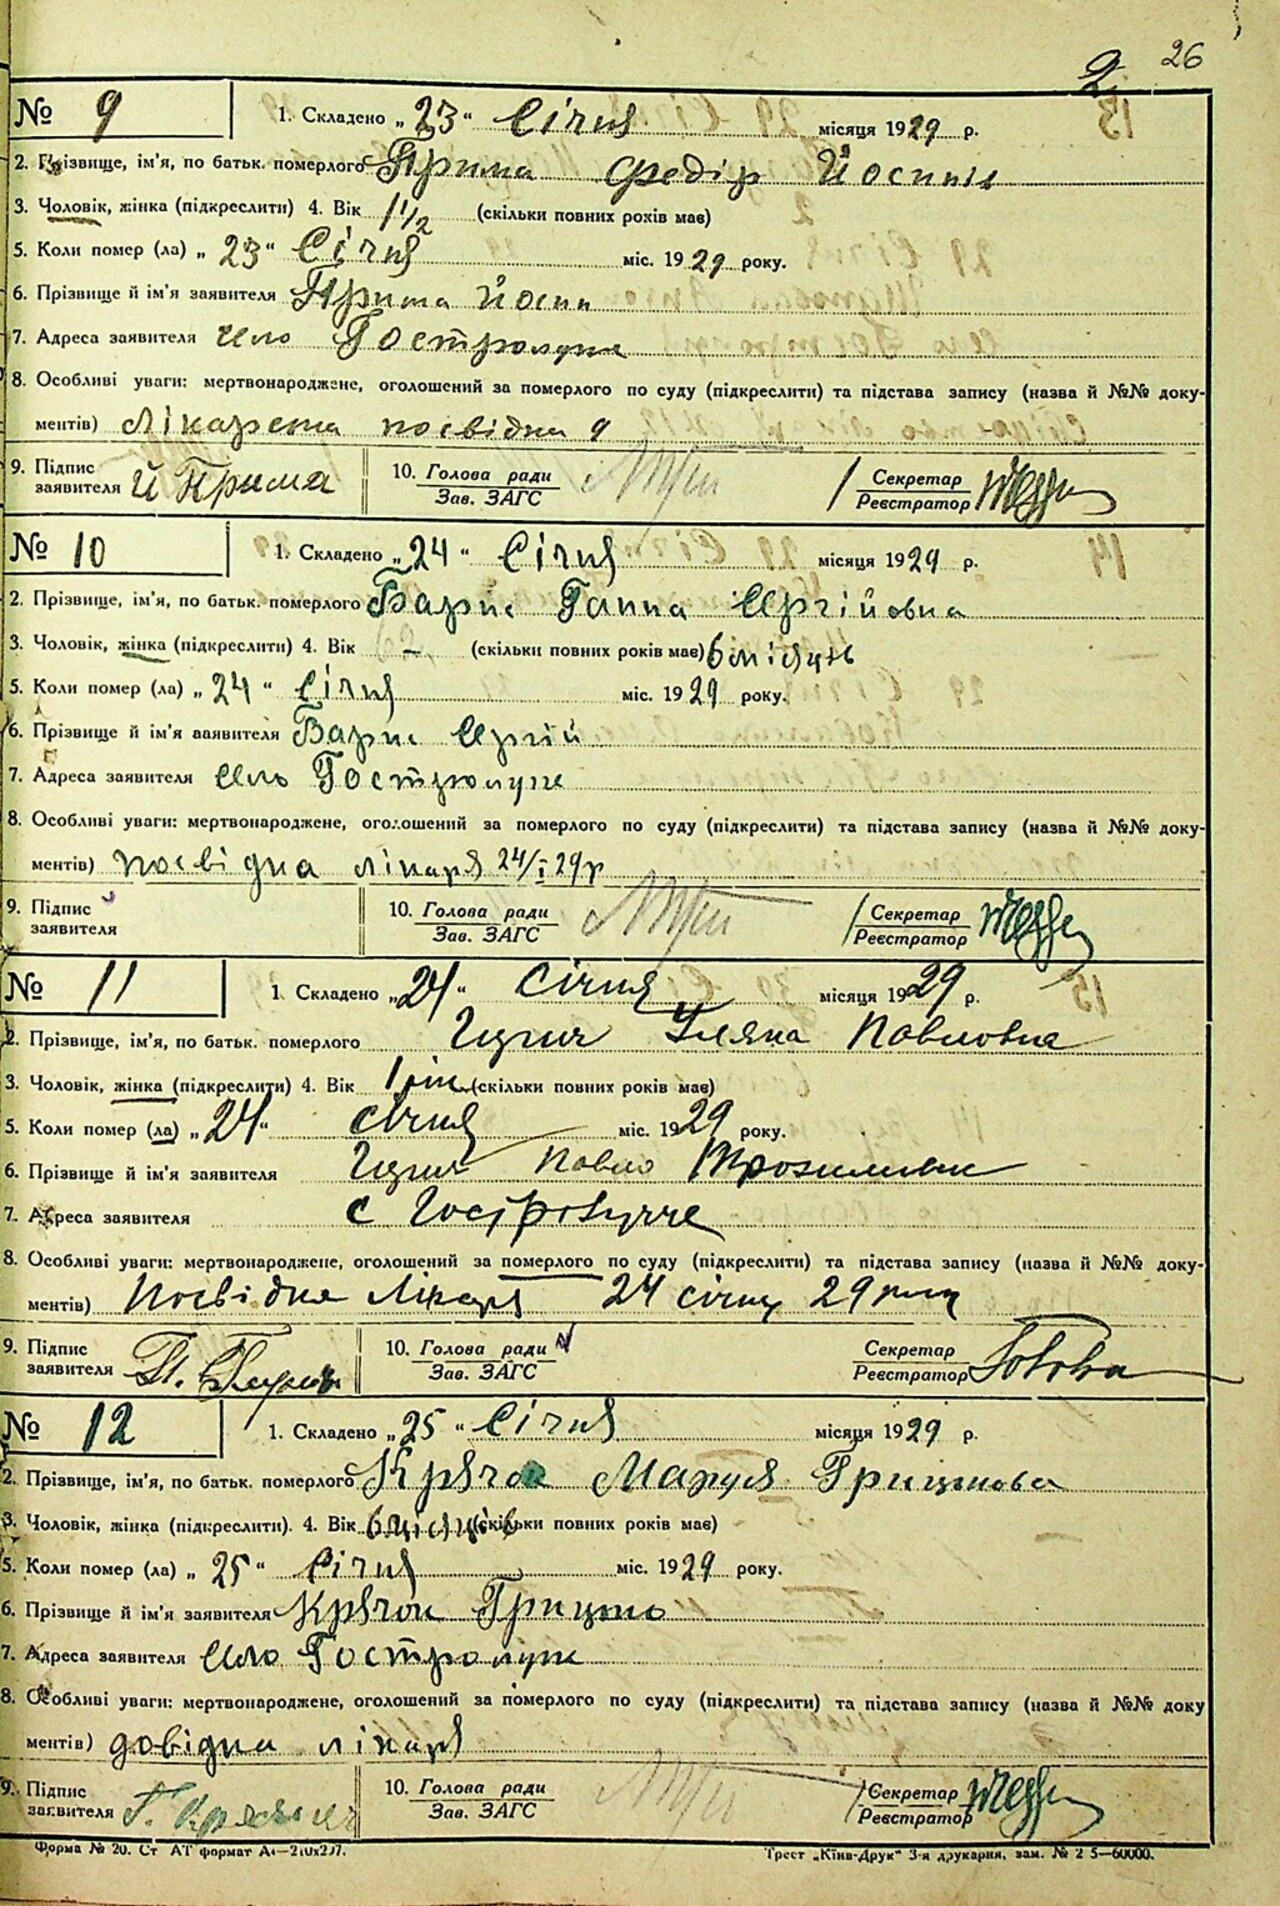 26
2
№ 9 1. Складено „23“ Січня місяця 1929 р.
2. Прізвище, ім'я, по батьк. померлого Прима Федір Йосипів
3. Чоловік, жінка (підкреслити) 4. Вік 1 1/2 (скільки повних рохів має)
5. Коли помер (ла) „23“ Січня міс. 1929 року.
6. Прізвище й ім'я заявителя Прима Йосип
7. Адреса заявителя Село Гостролуче
8. Особливі уваги: мертвонароджене, оголошений за померлого по суду (підкреслити) та підстава запису (назва й №№ доку-
ментів) Лікарська посвідка 9
9. Підпис заявителя Й Прима 10. Голова ради Зав. ЗАГС Секретар Реєстратор
№ 10 1. Складено „24“ Січня місяця 1929 р.
2. Прізвище, ім'я, по батьк. померлого Ганна Сергійовна
3. Чоловік, жінка (підкреслити) 4. Вік – (скільки повних років має) 6 місяць
5. Коли помер (ла) „24“ Січня міс. 1929 року.
6. Прізвище й ім'я заявителя Сергій
7. Адреса заявителя Село Гостролуче
8. Особливі уваги: мертвонароджене, оголошений за померлого по суду (підкреслити) та підстава запису (назва й №№ доку-
ментів) посвідка лікаря 24/I 29 р
9. Підпис заявителя 10. Голова ради Зав. ЗАГС Секретар Реєстратор
№ 11 1. Складено „24“ Січня місяця 1929 р.
2. Прізвище, ім'я, по батьк. померлого Уляна Павловна
3. Чоловік, жінка (підкреслити) 4. Вік 1 рік (скільки повних років має)
5. Коли помер (ла) „24“ січня міс. 1929 року.
6. Прізвище й ім'я заявителя Павло
7. Адреса заявителя с Гостролучче
8. Особливі уваги: мертвонароджене, оголошений за померлого по суду (підкреслити) та підстава запису (назва й №№ доку-
ментів) Посвідка Лікаря 24 січня 29 року
9. Підпис заявителя 10. Голова ради Зав. ЗАГС Секретар Реєстратор
№ 12 1. Складено „25“ Січня місяця 1929 р.
2. Прізвище, ім'я, по батьк. померлого Крячок Маруся Грицькова
3. Чоловік, жінка (підкреслити). 4. Вік 6 місяців (скільки повних років має)
5. Коли помер (ла) „25“ Січня міс. 1929 року.
6. Прізвище й ім'я заявителя Крячок Грицько
7. Адреса заявителя Село Гостролуче
8. Особливі уваги: мертвонароджене, оголошений за померлого по суду (підкреслити) та підстава запису (назва й №№ доку
ментів) довідка лікаря
9. Підпис заявителя Г. Крячок 10. Голова ради Зав. ЗАГС Секретар Реєстратор
Форма № 20. Ст АТ формат А4—210х297. Трест „Київ-Друк“ 3-я друкарня, зам. № 2 5—60000.